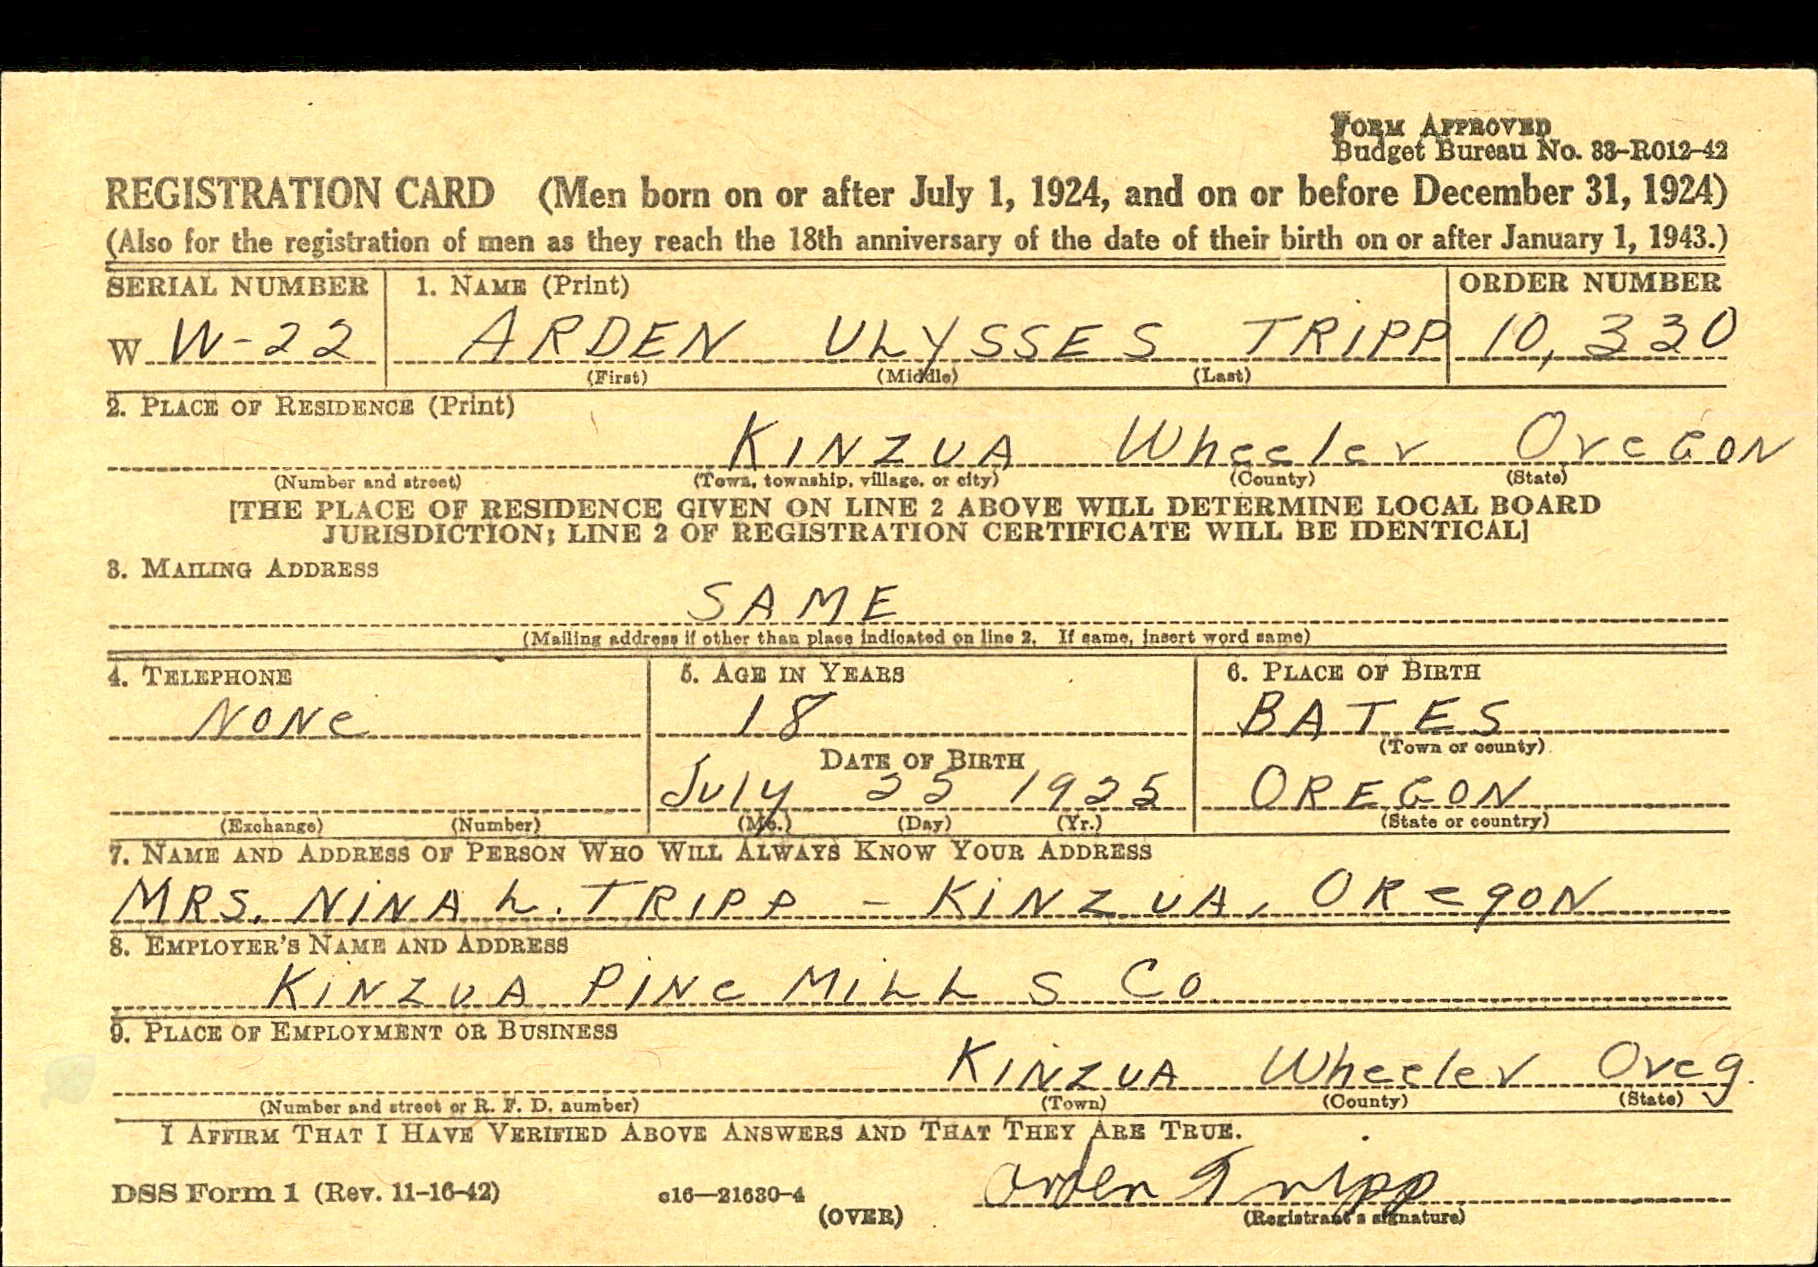 FORM APPROVED
Budget Bureau No. 33-R012-42
REGISTRATION CARD (Men born on or after July 1, 1924, and on or before December 31, 1924)
(Also for the registration of men as they reach the 18th anniversary of the date of their birth on or after January 1, 1943.)
SERIAL NUMBER 1. NAME (Print) ORDER NUMBER
W W-22 ARDEN ULYSSES TRIPP 10,330
(First) (Middle) (Last)
2. PLACE OF RESIDENCE (Print)
KINZUA Wheeler OreGON
(Number and street) (Town, township, village, or city) (County) (State)
[THE PLACE OF RESIDENCE GIVEN ON LINE 2 ABOVE WILL DETERMINE LOCAL BOARD
JURISDICTION; LINE 2 OF REGISTRATION CERTIFICATE WILL BE IDENTICAL]
3. MAILING ADDRESS
SAME
(Mailing address if other than place indicated on line 2. If same, insert word same)
4. TELEPHONE 5. AGE IN YEARS 6. PLACE OF BIRTH
NONe 18 BATES
(Town or county)
DATE OF BIRTH
July 25 1925 OREGON
(Exchange) (Number) (Mo.) (Day) (Yr.) (State or country)
7. NAME AND ADDRESS OF PERSON WHO WILL ALWAYS KNOW YOUR ADDRESS
MRS. NiNA L. TRIPP - KiNZUA, ORegON
8. EMPLOYER'S NAME AND ADDRESS
KiNZUA PINe MiLLS CO
9. PLACE OF EMPLOYMENT OR BUSINESS
KINZUA Wheeler Oreg.
(Number and street or R. F. D. number) (Town) (County) (State)
I AFFIRM THAT I HAVE VERIFIED ABOVE ANSWERS AND THAT THEY ARE TRUE.
Arden Tripp
DSS Form 1 (Rev. 11-16-42) c16-21630-4
(OVER) (Registrant's signature)